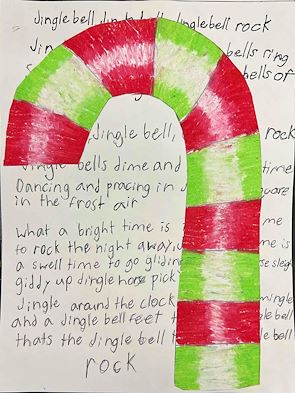 Jingle bell Jingle bell Jingle bell rock
Jin bells ring
S bells of
Jingle bell, rock
Jingle bells dime and time
Dancing and pracing in J
in the frost air
What a bright time is
to rock the night away, me is
a swell time to go gliding se sleigh
giddy up dingle horse pick
Jingle around the clock mingle
and a Jingle bell feet t bell
thats the Jingle bell
rock